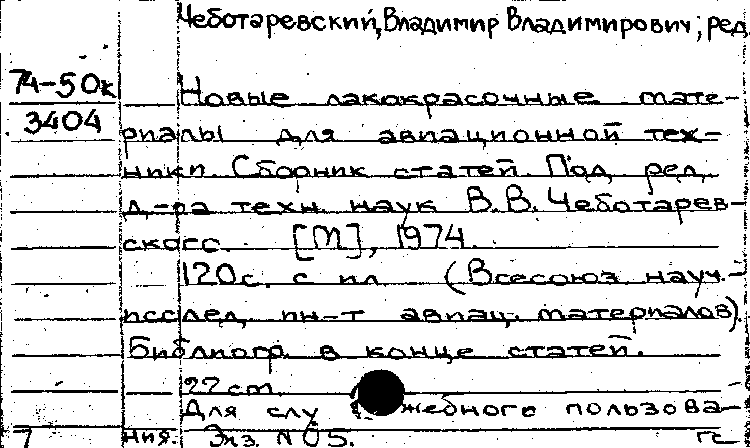 Чеботаревский, Владимир Владимирович, ред.
74-50к
3404
Новые лакокрасочные мате-
риалы для авиационной тех-
ники. Сборник статей. Под ред.
д-ра техн. наук В.В. Чеботарев-
ского. [М], 1974.
120с. с ил. (Всесоюз. науч.-
исслед. ин-т авиац. материалов).
Библиогр. в конце статей.
22 cm.
Для служебного пользова-
ния. Экз. № 05.